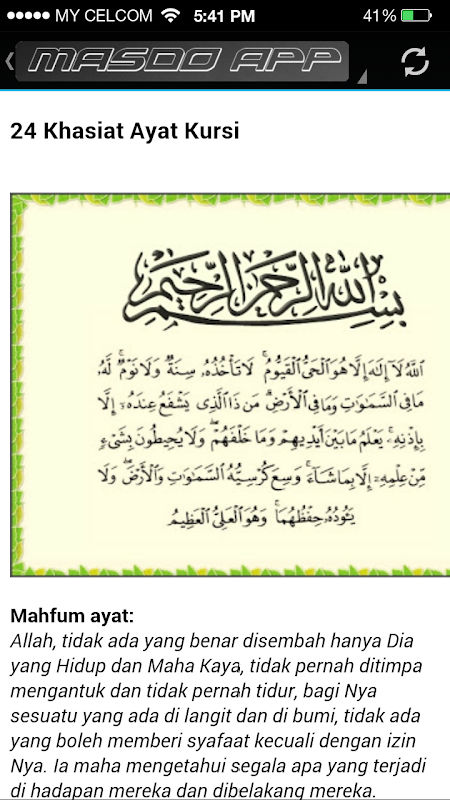 MY CELCOM 5:41 PM 41%
MASDO APP
24 Khasiat Ayat Kursi
بِسْمِ اللَّهِ الرَّحْمَٰنِ الرَّحِيمِ
اللَّهُ لَا إِلَٰهَ إِلَّا هُوَ الْحَيُّ الْقَيُّومُ ۚ لَا تَأْخُذُهُ سِنَةٌ وَلَا نَوْمٌ ۚ لَّهُ
مَا فِي السَّمَاوَاتِ وَمَا فِي الْأَرْضِ ۗ مَن ذَا الَّذِي يَشْفَعُ عِندَهُ إِلَّا
بِإِذْنِهِ ۚ يَعْلَمُ مَا بَيْنَ أَيْدِيهِمْ وَمَا خَلْفَهُمْ ۖ وَلَا يُحِيطُونَ بِشَيْءٍ
مِّنْ عِلْمِهِ إِلَّا بِمَا شَاءَ ۚ وَسِعَ كُرْسِيُّهُ السَّمَاوَاتِ وَالْأَرْضَ ۖ وَلَا
يَئُودُهُ حِفْظُهُمَا ۚ وَهُوَ الْعَلِيُّ الْعَظِيمُ
Mahfum ayat:
Allah, tidak ada yang benar disembah hanya Dia
yang Hidup dan Maha Kaya, tidak pernah ditimpa
mengantuk dan tidak pernah tidur, bagi Nya
sesuatu yang ada di langit dan di bumi, tidak ada
yang boleh memberi syafaat kecuali dengan izin
Nya. Ia maha mengetahui segala apa yang terjadi
di hadapan mereka dan dibelakang mereka.